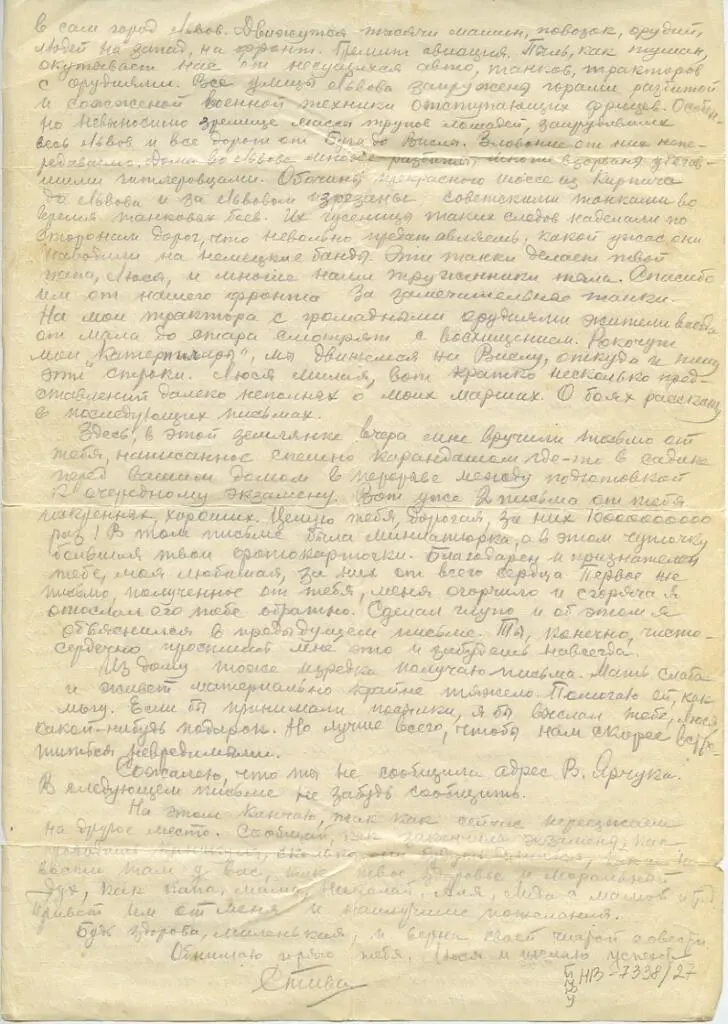 в сам город Львов. Движутся тысячи машин, повозок, орудий,
людей на запад, на фронт. Гремит авиация. Пыль, как туман,
окутывает нас от несущихся авто, танков, тракторов
с орудиями. Все улицы Львова загружены горами разбитой
и сожженой военной техники отступающих фрицев. Особен-
но невыносимо зрелище масса трупов лошадей, запрудивших
весь Львов и все дороги от Буга до Вислы. Зловоние от них непе-
редаваемо. Дома во Львове многие разбиты, многие взорваны убегав-
шими гитлеровцами. Обочины прекрасного шоссе из кирпича
до Львова и за Львовом изрезаны советскими танками во
время танковых боев. Их гусеницы таких следов наделали по
сторонам дорог, что невольно представляешь, какой ужас они
наводили на немецкие банды. Эти танки делает твой
папа, Люся, и многие наши труженики тыла. Спасибо
им от нашего фронта за замечательные танки.
На мои трактора с громадными орудиями жители
от мала до стара смотрят с восхищением. Рокочут
мои "катерпиллары", мы движемся на Вислу, откуда и пишу
эти строки. Люся милая, вот кратко несколько пред-
ставлений далеко неполных о моих маршах. О боях расскажу
в последующих письмах.
Здесь, в этой землянке вчера мне вручили письмо от
тебя, написанное спешно карандашом где-то в садике
перед вашим домом в перерыве между подготовкой
к очередному экзамену. Вот уже 2 письма от тебя
искренних, хороших. Целую тебя, дорогая, за них 1000000000
раз! В том письме была миниатюрка, а в этом чуточку
большая твои фотокарточки. Благодарен и признателен
тебе, моя любимая, за них от всего сердца. Первое же
письмо, полученное от тебя, меня огорчило и сгоряча я
отослал его тебе обратно. Сделал глупо и об этом я
объяснился в предыдущем письме. Ты, конечно, чисто-
сердечно простишь мне это и забудешь навсегда.
Из дому тоже изредка получаю письма. Мать слаба
и живет материально крайне тяжело. Помогаю ей, как
могу. Если бы принимали посылки, я бы выслал тебе, Люся
какой-нибудь подарок. Но лучше всего, чтобы нам скорее встре-
титься невредимыми.
Сожалею, что ты не сообщила адрес В. Ярчука.
В следующем письме не забудь сообщить.
На этом кончаю, так как сейчас переезжаем
на другое место. Сообщай, как закончила экзамены, как
сколько они
там у вас, как твое здоровье и моральный
дух, как папа, мама, Николай, Аля, Лида с мамой и т.д.
Привет им от меня и наилучшие пожелания.
Будь здорова, миленькая, и верна своей чистой совести.
Обнимаю горячо тебя. Люся и желаю успехов
Стива
НВ-7338/27